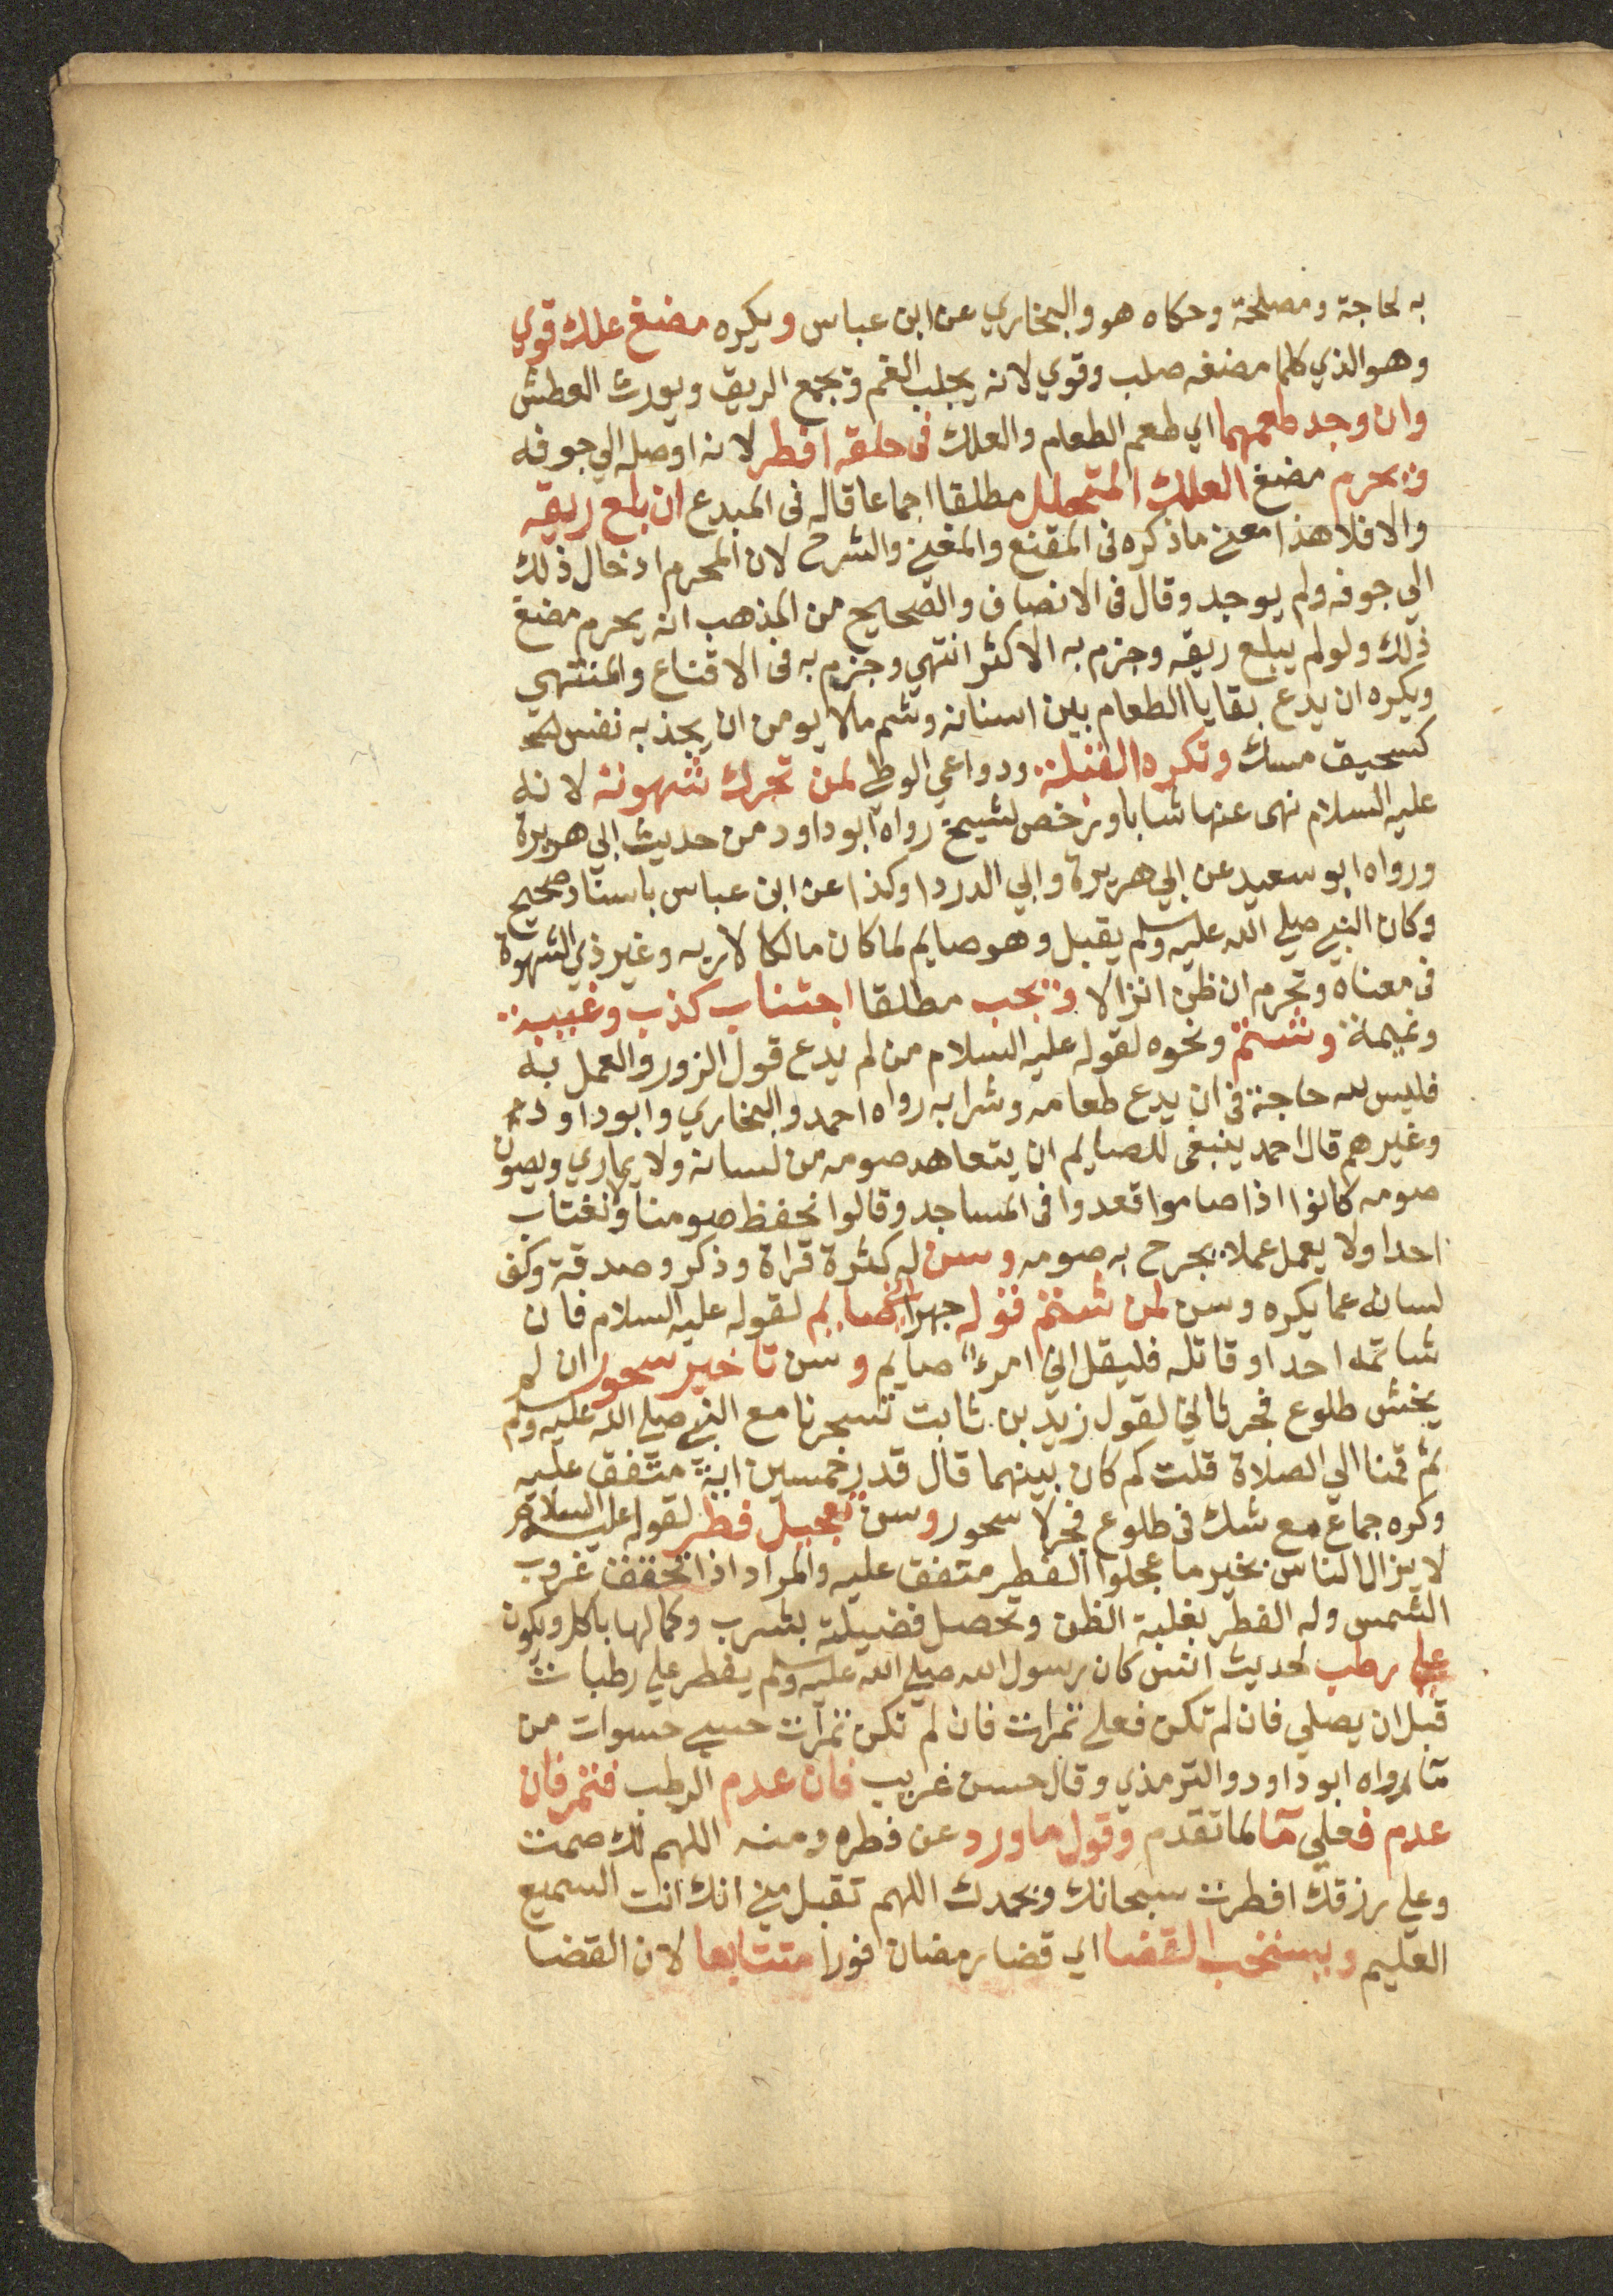 به لحاجة ومصلحة وحكاه هو والبخاري عن ابن عباس ويكره مضغ علك قوي
وهو الذي كلما مضغه صلب وقوي لانه يجلب الغم ويجمع الريق ويورث العطش
وان وجد طعمهما اي طعم الطعام والعلك فى حلقه افطر لانه اوصله الي جوفه
ويحرم مضغ العلك المتحلل مطلقا اجماعا قاله فى المبدع ان بلع ريقه
والا فلا هذا معنى ماذكره فى المقنع والمغنى والشرح لان المحرم ادخال ذلك
الي جوفه ولم يوجد وقال فى الانصاف والصحيح من المذهب انه يحرم مضغ
ذلك ولو لم يبلع ريقه وجزم به الاكثر انتهي وجزم به فى الاقناع والمنتهي
ويكره ان يدع بقايا الطعام بين اسنانه وشم مالا يومن ان يجذبه نفس
كسحيق مسك وتكره القبلة ودواعي الوطي لمن تحرك شهوته لانه
عليه السلام نهى عنها شابا ورخص لشيخ رواه ابوداود من حديث ابي هريرة
ورواه ابو سعيد عن ابي هريرة وابي الدردا وكذا عن ابن عباس باسناد صحيح
وكان النبي صلي الله عليه وسلم يقبل وهو صايم لما كان مالكا لاربه وغير ذي الشهوة
فى معناه وتحرم ان ظن انزالا ويجب مطلقا اجتناب كذب وغيبة
ونميمة وشتم ونحوه لقوله عليه السلام من لم يدع قول الزور والعمل به
فليس لله حاجة فى ان يدع طعامه وشرابه رواه احمد والبخاري وابوداود
وغيرهم قال احمد ينبغى للصايم ان يتعاهد صومه من لسانه ولا يماري ويصون
صومه كانوا اذا صاموا قعدوا فى المساجد وقالوا نحفظ صومنا ولا نغتاب
احدا ولا يعمل عملا يجرح به صومه وسن له كثرة قراة وذكر وصدقة وكف
لسانه عما يكره وسن لمن شتم قوله جهرا اني صايم لقوله عليه السلام فان
شاتمه احد او قاتله فليقل اني امرء صايم وسن تاخير سحور ان لم
يخش طلوع فجر ثاني لقول زيد بن ثابت تسحرنا مع النبي صلي الله عليه وسلم
ثم قمنا الي الصلاة قلت كم كان بينهما قال قدر خمسين اية متفق عليه
وكره جماع مع شك فى طلوع فجر لا سحور وسن تعجيل فطر لقوله عليه السلام
لا يزال الناس بخير ما عجلوا الفطر متفق عليه والمراد اذا تحقق غروب
الشمس وله الفطر بغلبة الظن وتحصل فضيلته بشرب وكمالها باكل ويكون
على رطب لحديث انس كان رسول الله صلي الله عليه وسلم يفطر علي رطبات
قبل ان يصلي فان لم تكن فعلي تمرات فان لم تكن تمرات حسي حسوات من
ما رواه ابو داود والترمذي وقال حسن غريب فان عدم الرطب فتمر فان
عدم فعلي ما لما تقدم وقول ما ورد عن فطره ومنه اللهم لك صمت
وعلي رزقك افطرت سبحانك وبحمدك اللهم تقبل مني انك انت السميع
العليم ويستحب القضا اي قضا رمضان فورا متتابعا لان القضا